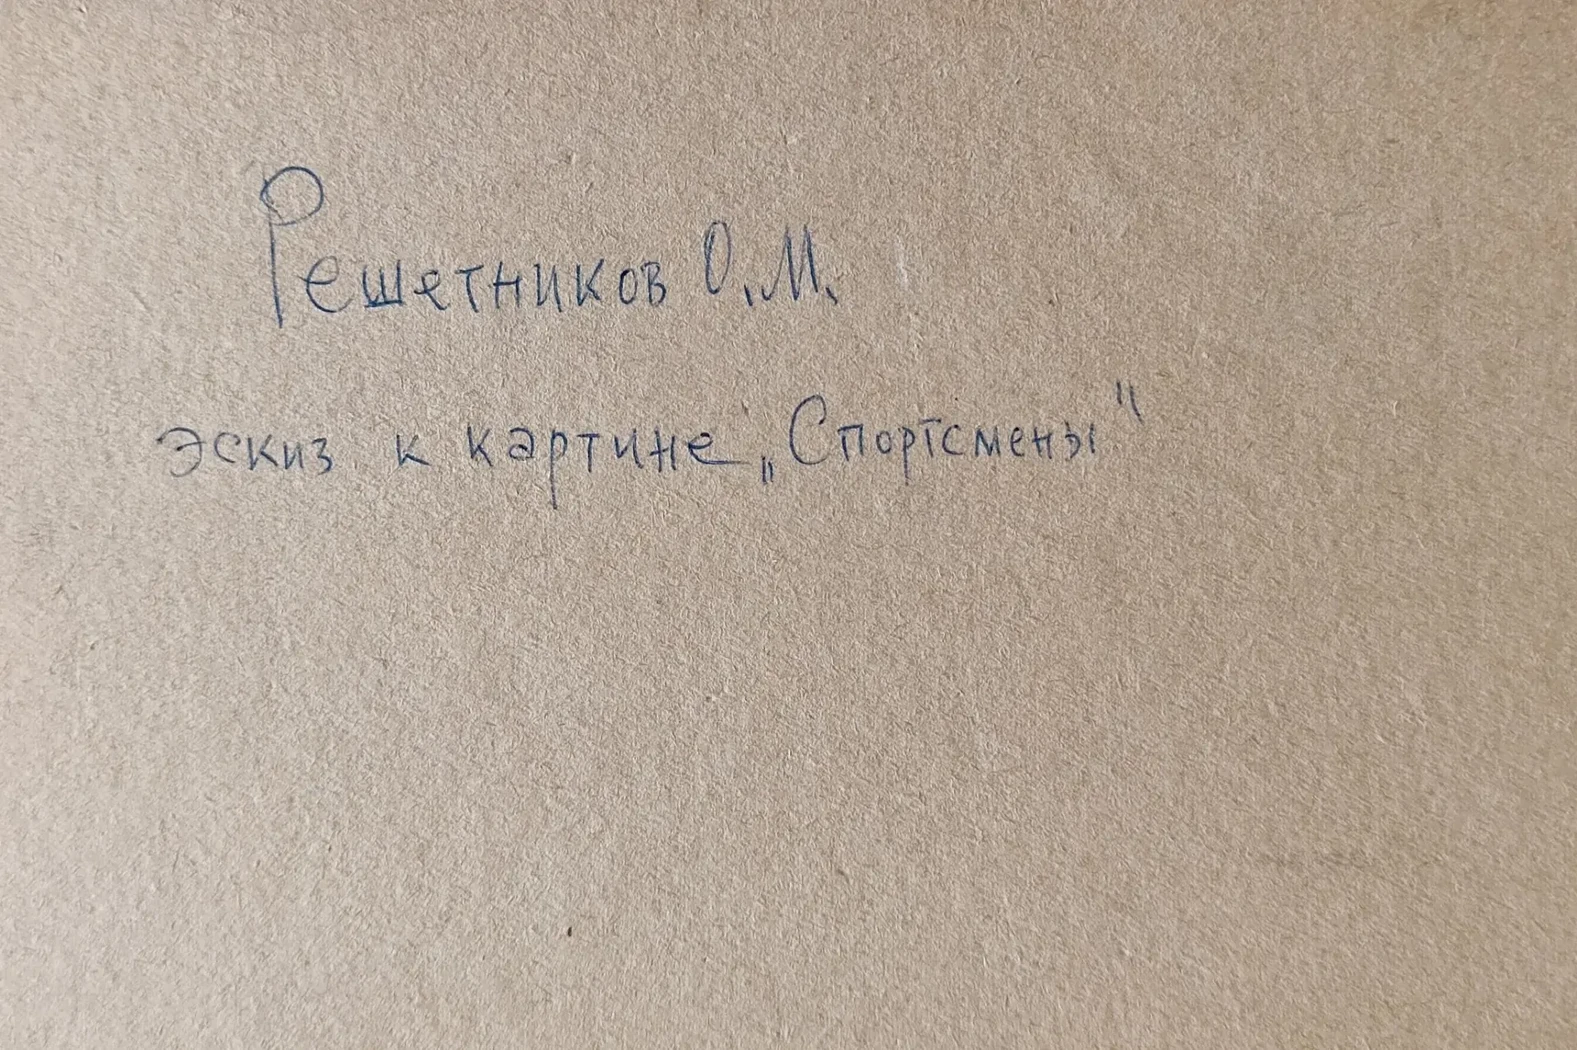 Решетников О.М.
эскиз к картине „Спортсмены"